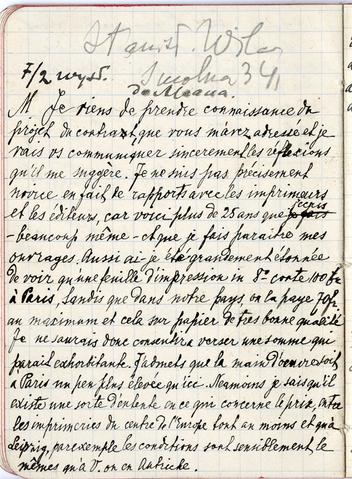 Stanisł.
Smolna 34
7/2 wysł.
do Meana.
M Je viens de prendre connaissance du
projet du contrat que vous m'avez adressé et je
vais vs communiquer sincèrement les réflexions
qu'il me suggère. Je ne suis pas précisement
novice en fait de rapports avec les imprimeurs
et les éditeurs, car voici plus de 25 ans que j'écris
- beaucoup même - et que je fais paraître mes
ouvrages. Aussi ai-je été grandement étonnée
de voir qu'une feuille d'impression in 8º coûte 100 fr
à Paris, tandis que dans notre pays, on la paye 70 fr
au maximum et cela sur papier de très bonne qualité
Je ne saurais donc consentir à verser une somme qui
paraît exhorbitante. J'admets que la main d'œuvre soit
à Paris un peu plus élevée qu'ici. Néamoins je sais qu'il
existe une sorte d'entente en ce qui concerne le prix, entre
les imprimeries du centre de l'Europe tout au moins et qu'à
Leipzig, par exemple les conditions sont sensiblement le
mêmes qu'à V. ou en Autriche.